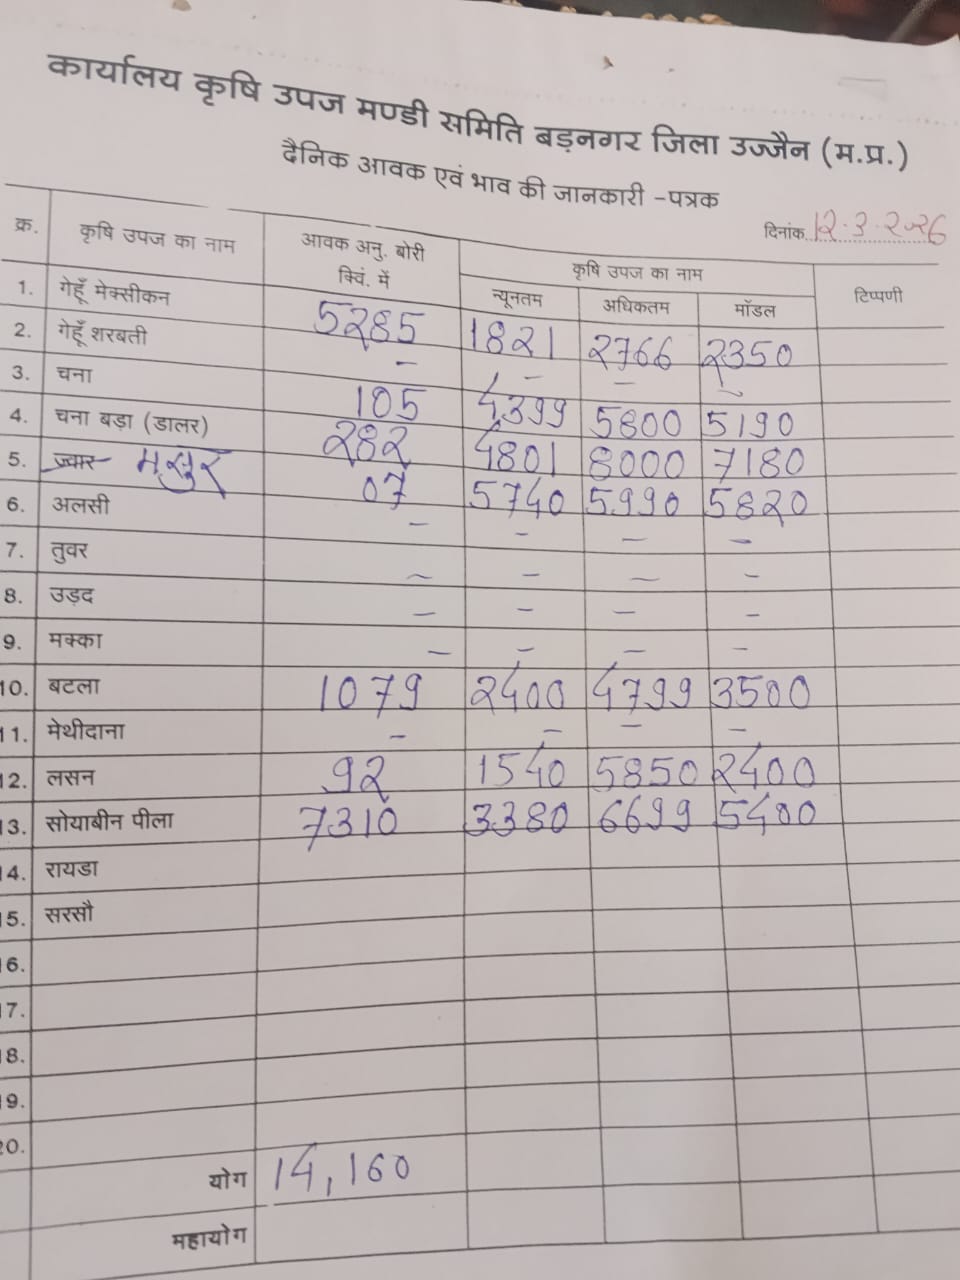 कार्यालय कृषि उपज मण्डी समिति बड़नगर जिला उज्जैन (म.प्र.)
दैनिक आवक एवं भाव की जानकारी -पत्रक
दिनांक 12.3.2026
क्र. कृषि उपज का नाम आवक अनु. बोरी क्विं. में कृषि उपज का नाम टिप्पणी
न्यूनतम अधिकतम मॉडल
1. गेहूँ मेक्सीकन 5285 1821 2766 2350
2. गेहूँ शरबती - - - -
3. चना 105 4399 5800 5190
4. चना बड़ा (डालर) 282 4801 8000 7180
5. ज्वार मसुर 07 5740 5990 5820
6. अलसी - - - -
7. तुवर - - - -
8. उड़द - - - -
9. मक्का - - - -
10. बटला 1079 2400 4799 3500
11. मेथीदाना - - - -
12. लसन 92 1540 5850 2400
13. सोयाबीन पीला 7310 3380 6699 5400
14. रायडा
15. सरसौ
16.
17.
18.
19.
20.
योग 14,160
महायोग